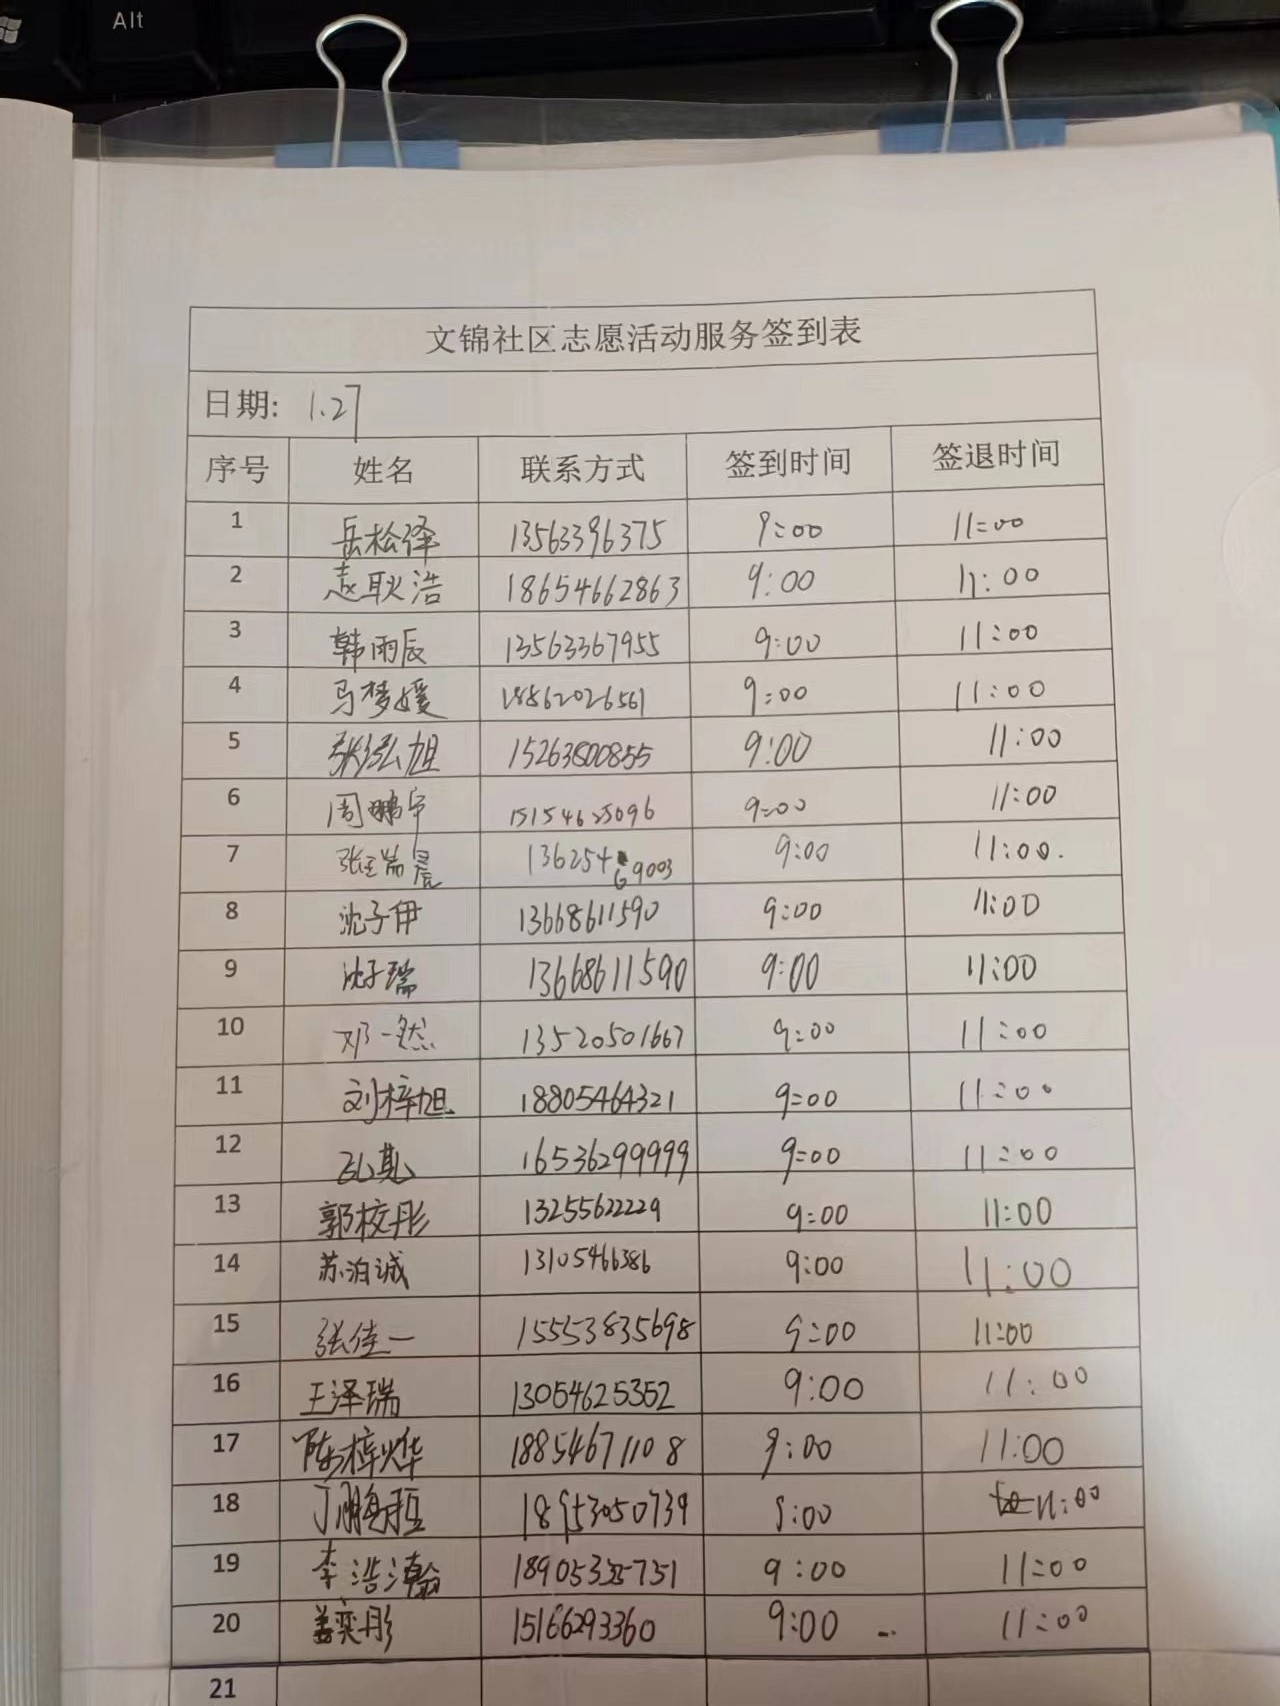 Alt
文锦社区志愿活动服务签到表
日期: 1.27
序号 姓名 联系方式 签到时间 签退时间
1 岳松泽 13563396375 9:00 11:00
2 耿浩 18654662863 9:00 11:00
3 韩雨辰 13563367955 9:00 11:00
4 马梦媛 18562026561 9:00 11:00
5 张泓旭 15263800855 9:00 11:00
6 周鹏宇 15154625096 9:00 11:00
7 张瑞晨 13625469003 9:00 11:00.
8 沈子伊 13668611590 9:00 11:00
9 沈子瑞 13668611590 9:00 11:00
10 邓一然 13520501667 9:00 11:00
11 刘梓旭 18805464321 9:00 11:00
12 孔 16536299999 9:00 11:00
13 郭校彤 13255622229 9:00 11:00
14 苏泊诚 13105466386 9:00 11:00
15 张佳一 15553835698 9:00 11:00
16 王泽瑞 13054625352 9:00 11:00
17 陈梓烨 18854671108 9:00 11:00
18 丁鹏 18953050739 9:00 11:00
19 李浩瀚 9:00 11:00
20 姜奕彤 15166293360 9:00 11:00
21